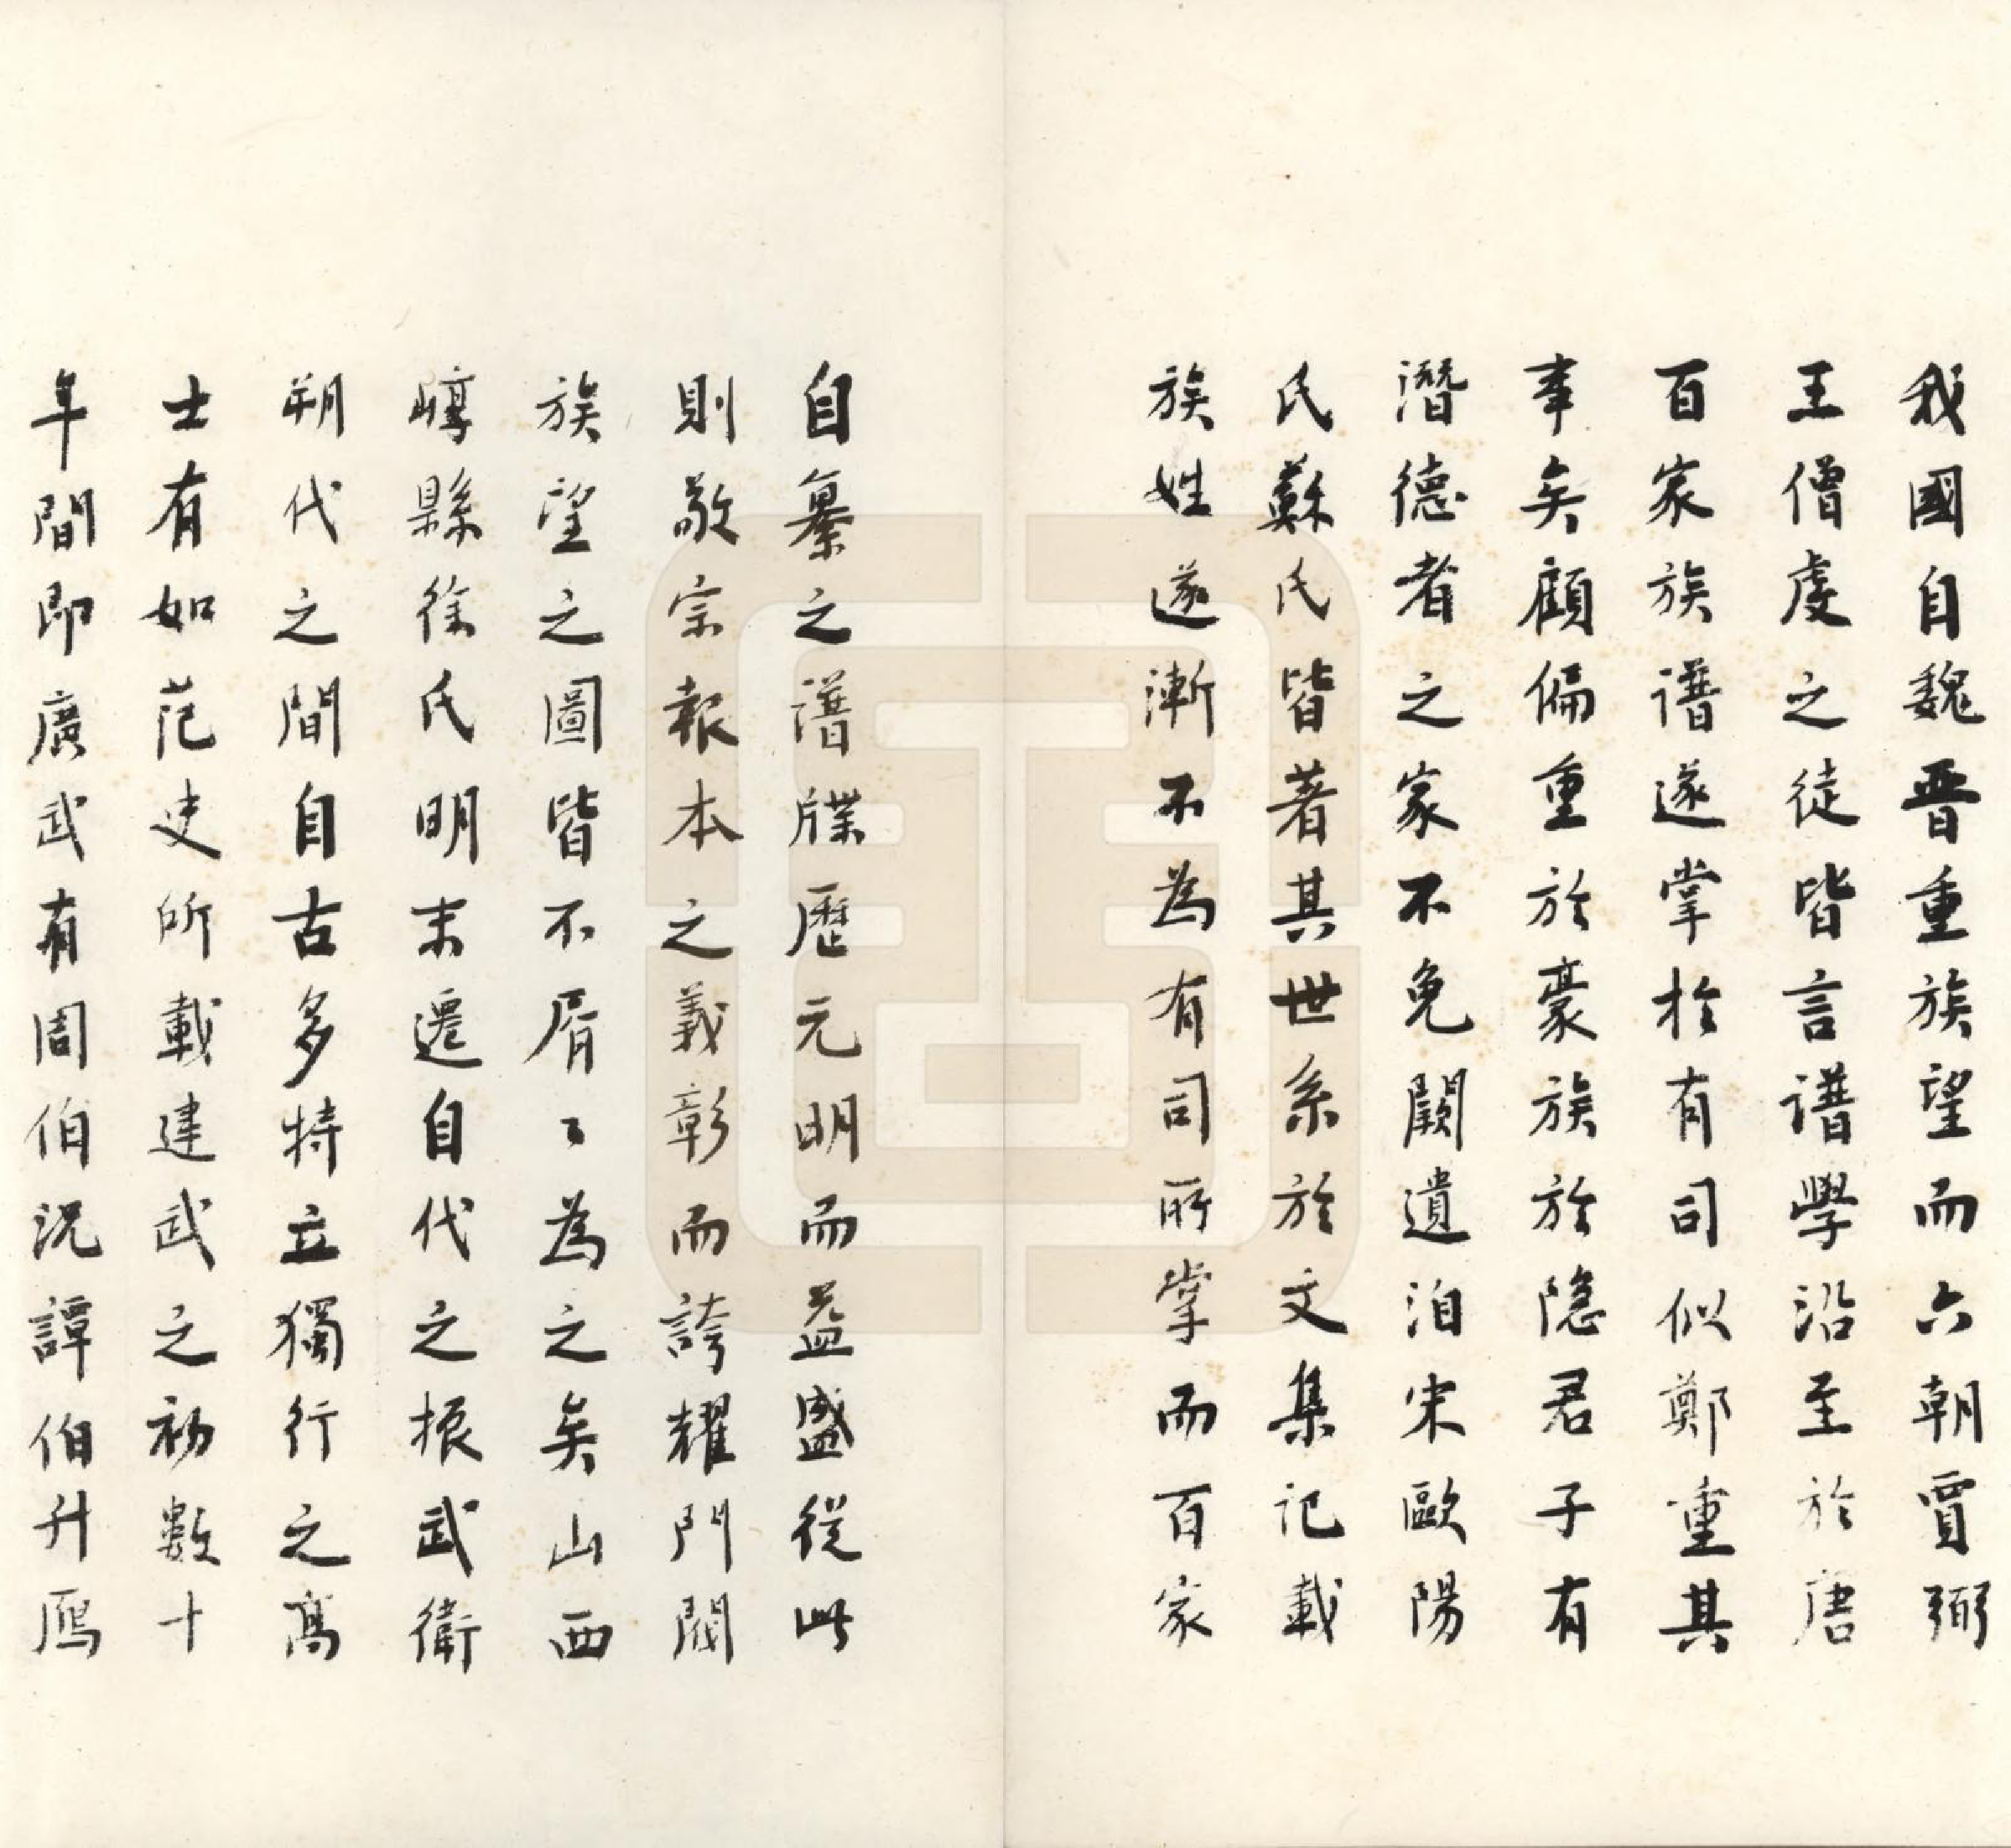 我國自魏晉重族望而六朝賈弼
王僧虔之徒皆言譜學沿至於唐
百家族譜遂掌於有司似鄭重其
事矣顧偏重於豪族於隱君子有
潛德者之家不免闕遺洎宋歐陽
氏蘇氏皆著其世系於文集記載
族姓遂漸不為有司所掌而百家
自纂之譜牒歷元明而益盛從此
則敬宗報本之義彰而誇耀門閥
族望之圖皆不屑〻為之矣山西
崞縣徐氏明末遷自代之振武衛
朔代之間自古多特立獨行之高
士有如范史所載建武之初數十
年間即廣武有周伯況譚伯升鴈